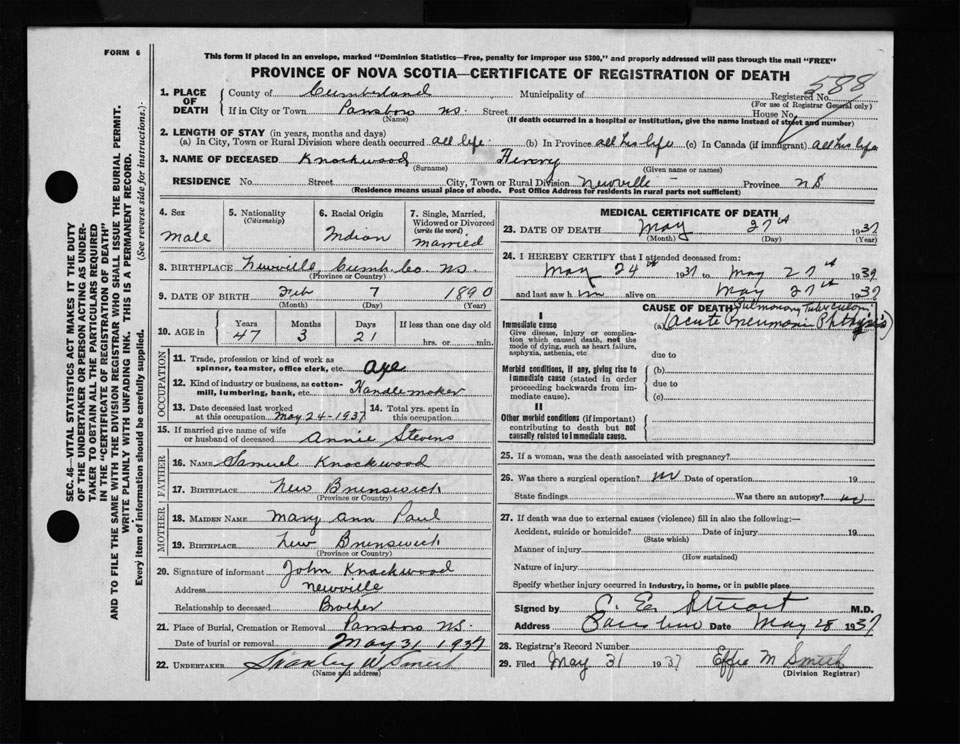 FORM 6
This form if placed in an envelope, marked "Dominion Statistics—Free, penalty for improper use $300," and properly addressed will pass through the mail "FREE"
PROVINCE OF NOVA SCOTIA—CERTIFICATE OF REGISTRATION OF DEATH
588
1. PLACE OF DEATH
County of Cumberland Municipality of Registered No.
(For use of Registrar General only)
If in City or Town Parrsboro N.S. Street House No.
(Name) (If death occurred in a hospital or institution, give the name instead of street and number)
2. LENGTH OF STAY (in years, months and days)
(a) In City, Town or Rural Division where death occurred all life (b) In Province all his life (c) In Canada (if immigrant) all his life
3. NAME OF DECEASED Knockwood Henry
(Surname) (Given name or names)
RESIDENCE No. Street City, Town or Rural Division Newville Province N S
(Residence means usual place of abode. Post Office Address for residents in rural parts not sufficient)
4. Sex
Male
5. Nationality
(Citizenship)
6. Racial Origin
Indian
7. Single, Married, Widowed or Divorced
(write the word)
married
8. BIRTHPLACE Newville, Cumb. Co. N.S.
(Province or Country)
9. DATE OF BIRTH Feb 7 1890
(Month) (Day) (Year)
10. AGE in Years Months Days If less than one day old
47 3 21 hrs. or min.
OCCUPATION
11. Trade, profession or kind of work as spinner, teamster, office clerk, etc. Axe
12. Kind of industry or business, as cotton-mill, lumbering, bank, etc. Handlemaker
13. Date deceased last worked at this occupation May 24-1937
14. Total yrs. spent in this occupation
15. If married give name of wife or husband of deceased Annie Stevens
FATHER
16. NAME Samuel Knockwood
17. BIRTHPLACE New Brunswick
(Province or Country)
MOTHER
18. MAIDEN NAME Mary Ann Paul
19. BIRTHPLACE New Brunswick
(Province or Country)
20. Signature of informant John Knockwood
Address Newville
Relationship to deceased Brother
21. Place of Burial, Cremation or Removal Parrsboro N.S.
Date of burial or removal May 31 1937
22. UNDERTAKER Stanley W Smith
(Name and address)
MEDICAL CERTIFICATE OF DEATH
23. DATE OF DEATH May 27th 1937
(Month) (Day) (Year)
24. I HEREBY CERTIFY that I attended deceased from:
May 24th 1937 to May 27th 1937
and last saw him alive on May 27th 1937
CAUSE OF DEATH
I
Immediate cause
Give disease, injury or complication which caused death, not the mode of dying, such as heart failure, asphyxia, asthenia, etc
Pulmonary Tuberculosis
(a) (Acute Pneumonic Phthysis)
due to
Morbid conditions, if any, giving rise to immediate cause (stated in order proceeding backwards from immediate cause).
(b)
due to
(c)
II
Other morbid conditions (if important) contributing to death but not causally related to immediate cause.
25. If a woman, was the death associated with pregnancy?
26. Was there a surgical operation? no Date of operation 19
State findings Was there an autopsy? no
27. If death was due to external causes (violence) fill in also the following:—
Accident, suicide or homicide? Date of injury 19
(State which)
Manner of injury
(How sustained)
Nature of injury
Specify whether injury occurred in industry, in home, or in public place
Signed by C. E. Stuart M.D.
Address Date May 28 1937
28. Registrar's Record Number
29. Filed May 31 1937 Effie M Smith
(Division Registrar)
SEC. 46—VITAL STATISTICS ACT MAKES IT THE DUTY
OF THE UNDERTAKER OR PERSON ACTING AS UNDER-
TAKER TO OBTAIN ALL THE PARTICULARS REQUIRED
IN THE "CERTIFICATE OF REGISTRATION OF DEATH"
AND TO FILE THE SAME WITH THE DIVISION REGISTRAR WHO SHALL ISSUE THE BURIAL PERMIT.
WRITE PLAINLY WITH UNFADING INK. THIS IS A PERMANENT RECORD.
Every item of information should be carefully supplied. (See reverse side for instructions.)